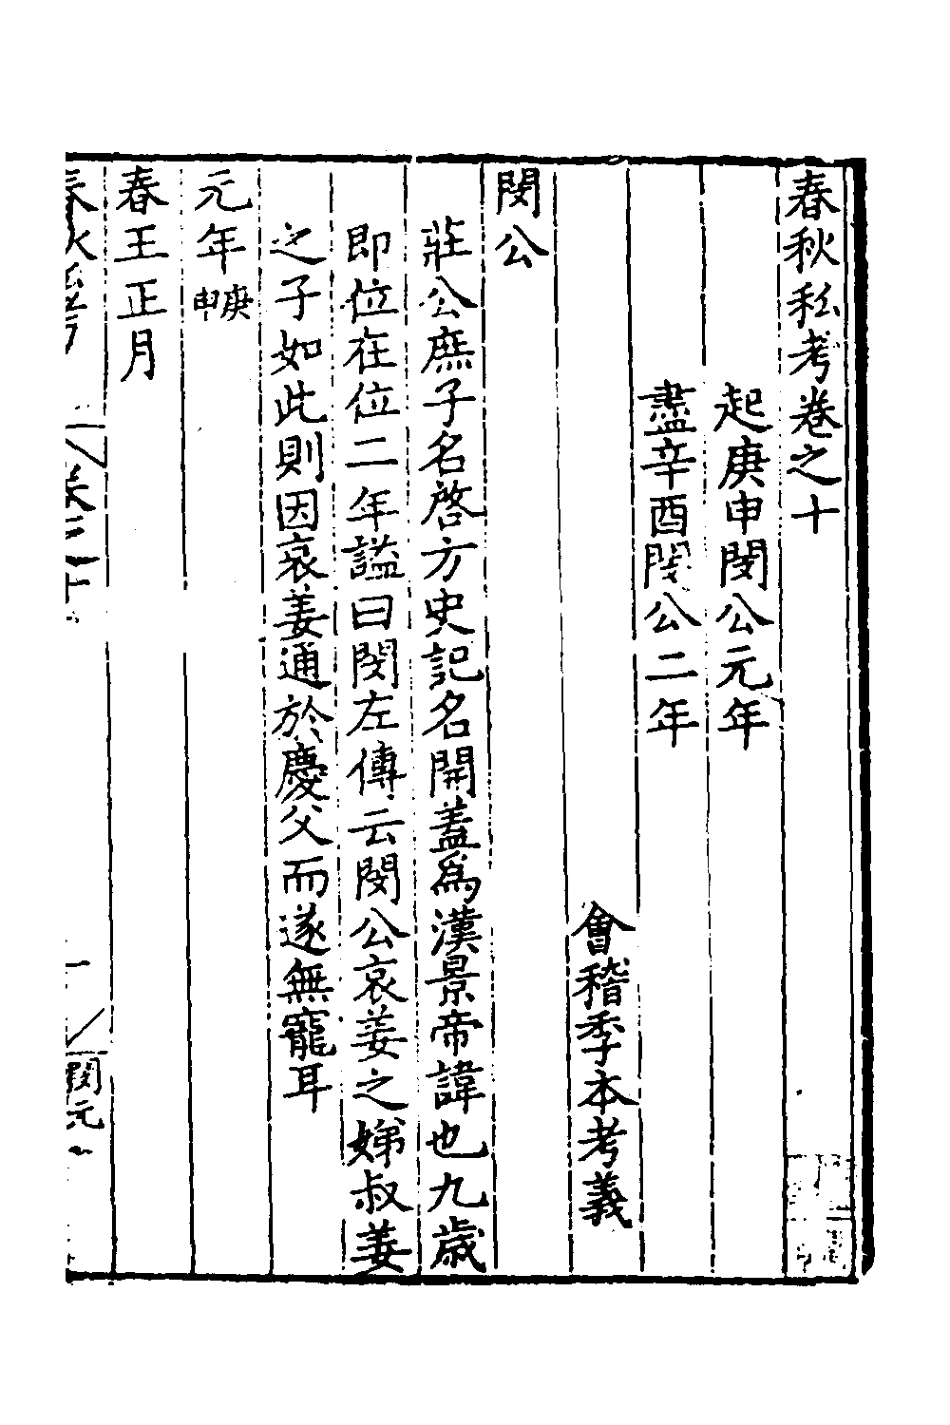 春秋私考卷之十
起庚申閔公元年
盡辛酉閔公二年
會稽季本考義
閔公
莊公庶子名啓方史記名開蓋爲漢景帝諱也九歲
即位在位二年謚曰閔左傳云閔公哀姜之娣叔姜
之子如此則因哀姜通於慶父而遂無寵耳
元年庚申
春王正月
閔元